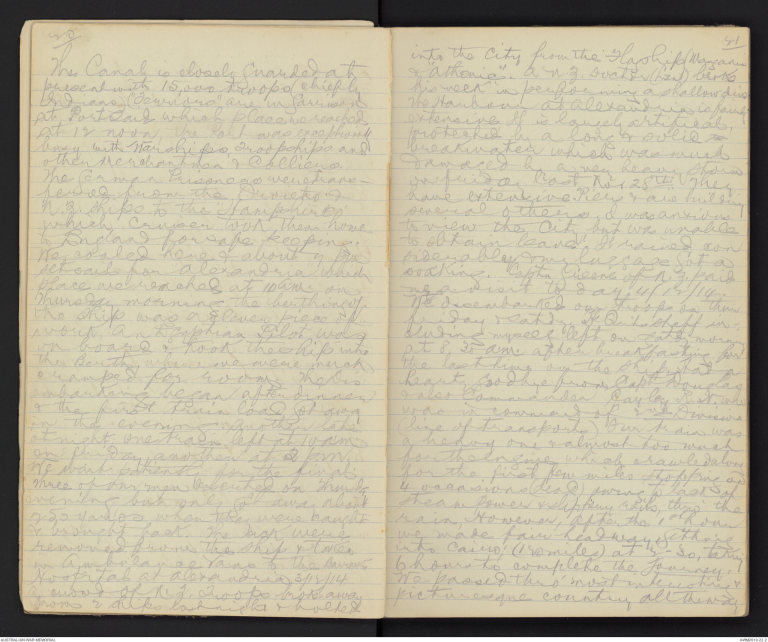 20
The Canal is closely Guarded at
present with 15,000 troops chiefly
Indians, are in Garrison
at Port Said which place we reached
at 12 noon, the Port was exceptionally
busy with Warships troopships and
other Merchant men & Colliers.
The German Prisoners were trans-
ferred from the &
N.Z. Ships to the Hampshire
which Cruiser took them home
to England for safe keeping.
We coaled here & about 7 PM
set sail for Alexandria which
place we reached at 10 am on
Thursday morning the berthing of
the ship was a clever piece of
work. An Egyptian Pilot was
on board & took the ship into
the Berth, where we were much
cramped for room. The dis-
embarking began after dinner
& the first train load got away
in the evening another later
at night. One train left at 10 am
on Friday another at 2 PM.
We want patients for the
Three of our men on Thursday
evening but only got away about
250 yards when they were caught
& brought back. The sick were
removed from the ship & taken
in Ambulance Vans to the
Hospital at Alexandria 3/12/14
a crowd of N.Z. troops broke away
from 2 ships last night & bolted
21
into the City from the Flagship Maunganui
& "Athenic". A N.Z. Doctor broke
his neck in performing a shallow dive
The Harbour at Alexandria is fairly
extensive It is largely artificial,
protected by a long & solid
breakwater which was much
damaged by a very heavy storm
on Friday last Nov 28th. They
have extensive Piers & are building
several others. I was anxious
to view the City but was unable
to obtain leave. It rained con-
siderably & my luggage got a
soaking. Capt of N.Z. paid
me a visit to day 4/12/14.
We disembarked our troops on
Friday & Satdy. Staff in-
cluding myself left on Satdy morning
at 8.25 am. after breakfasting for
the last time on the ship & had a
hearty Goodbye from Capt Douglas
& also Commander Cayley R.N. who
was in command of 2nd Division
(line of transports) Our train was
a heavy one & almost too much
for the Engine which crawled along
for the first few miles stopping on
4 occasions dead, owing to lack of
steam power & slippery rails, thro' the
rain. However, after the 1st hour
we made fair headway getting
into Cairo (130 miles) at 3-20, taking
6 hours to complete the Journey.
We passed thro' most interesting &
picturesque country all the way
AUSTRALIAN WAR MEMORIAL